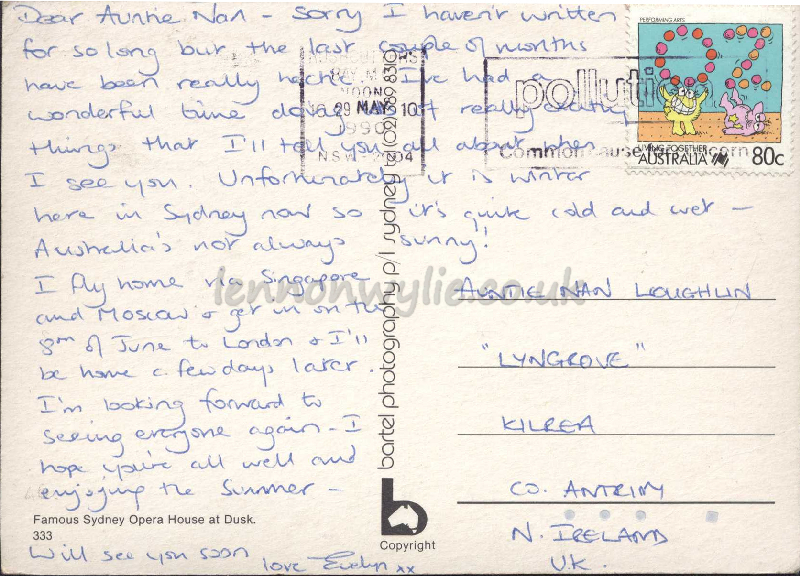 Dear Auntie Nan - sorry I haven't written
for so long but the last couple of months
have been really hectic. I've had a
wonderful time doing lots of really exciting
things that I'll tell you all about when
I see you. Unfortunately it is winter
here in Sydney now so it's quite cold and wet -
Australia's not always sunny!
I fly home via Singapore
and Moscow & get in on the
8th of June to London & I'll
be home a few days later.
I'm looking forward to
seeing everyone again - I
hope you're all well and
enjoying the summer -
Will see you soon
love Evelyn xx
Famous Sydney Opera House at Dusk.
333
bartel photography p/l sydney tel (02) 889 8310
b
Copyright
PERFORMING ARTS
LIVING TOGETHER
AUSTRALIA 80c
NOON
29 MAY 10
1990
NSW 2004
pollution
Common cause
AUNTIE NAN LOUGHLIN
"LYNGROVE"
KILREA
CO. ANTRIM
N. IRELAND
U.K.
lennonwylie.co.uk